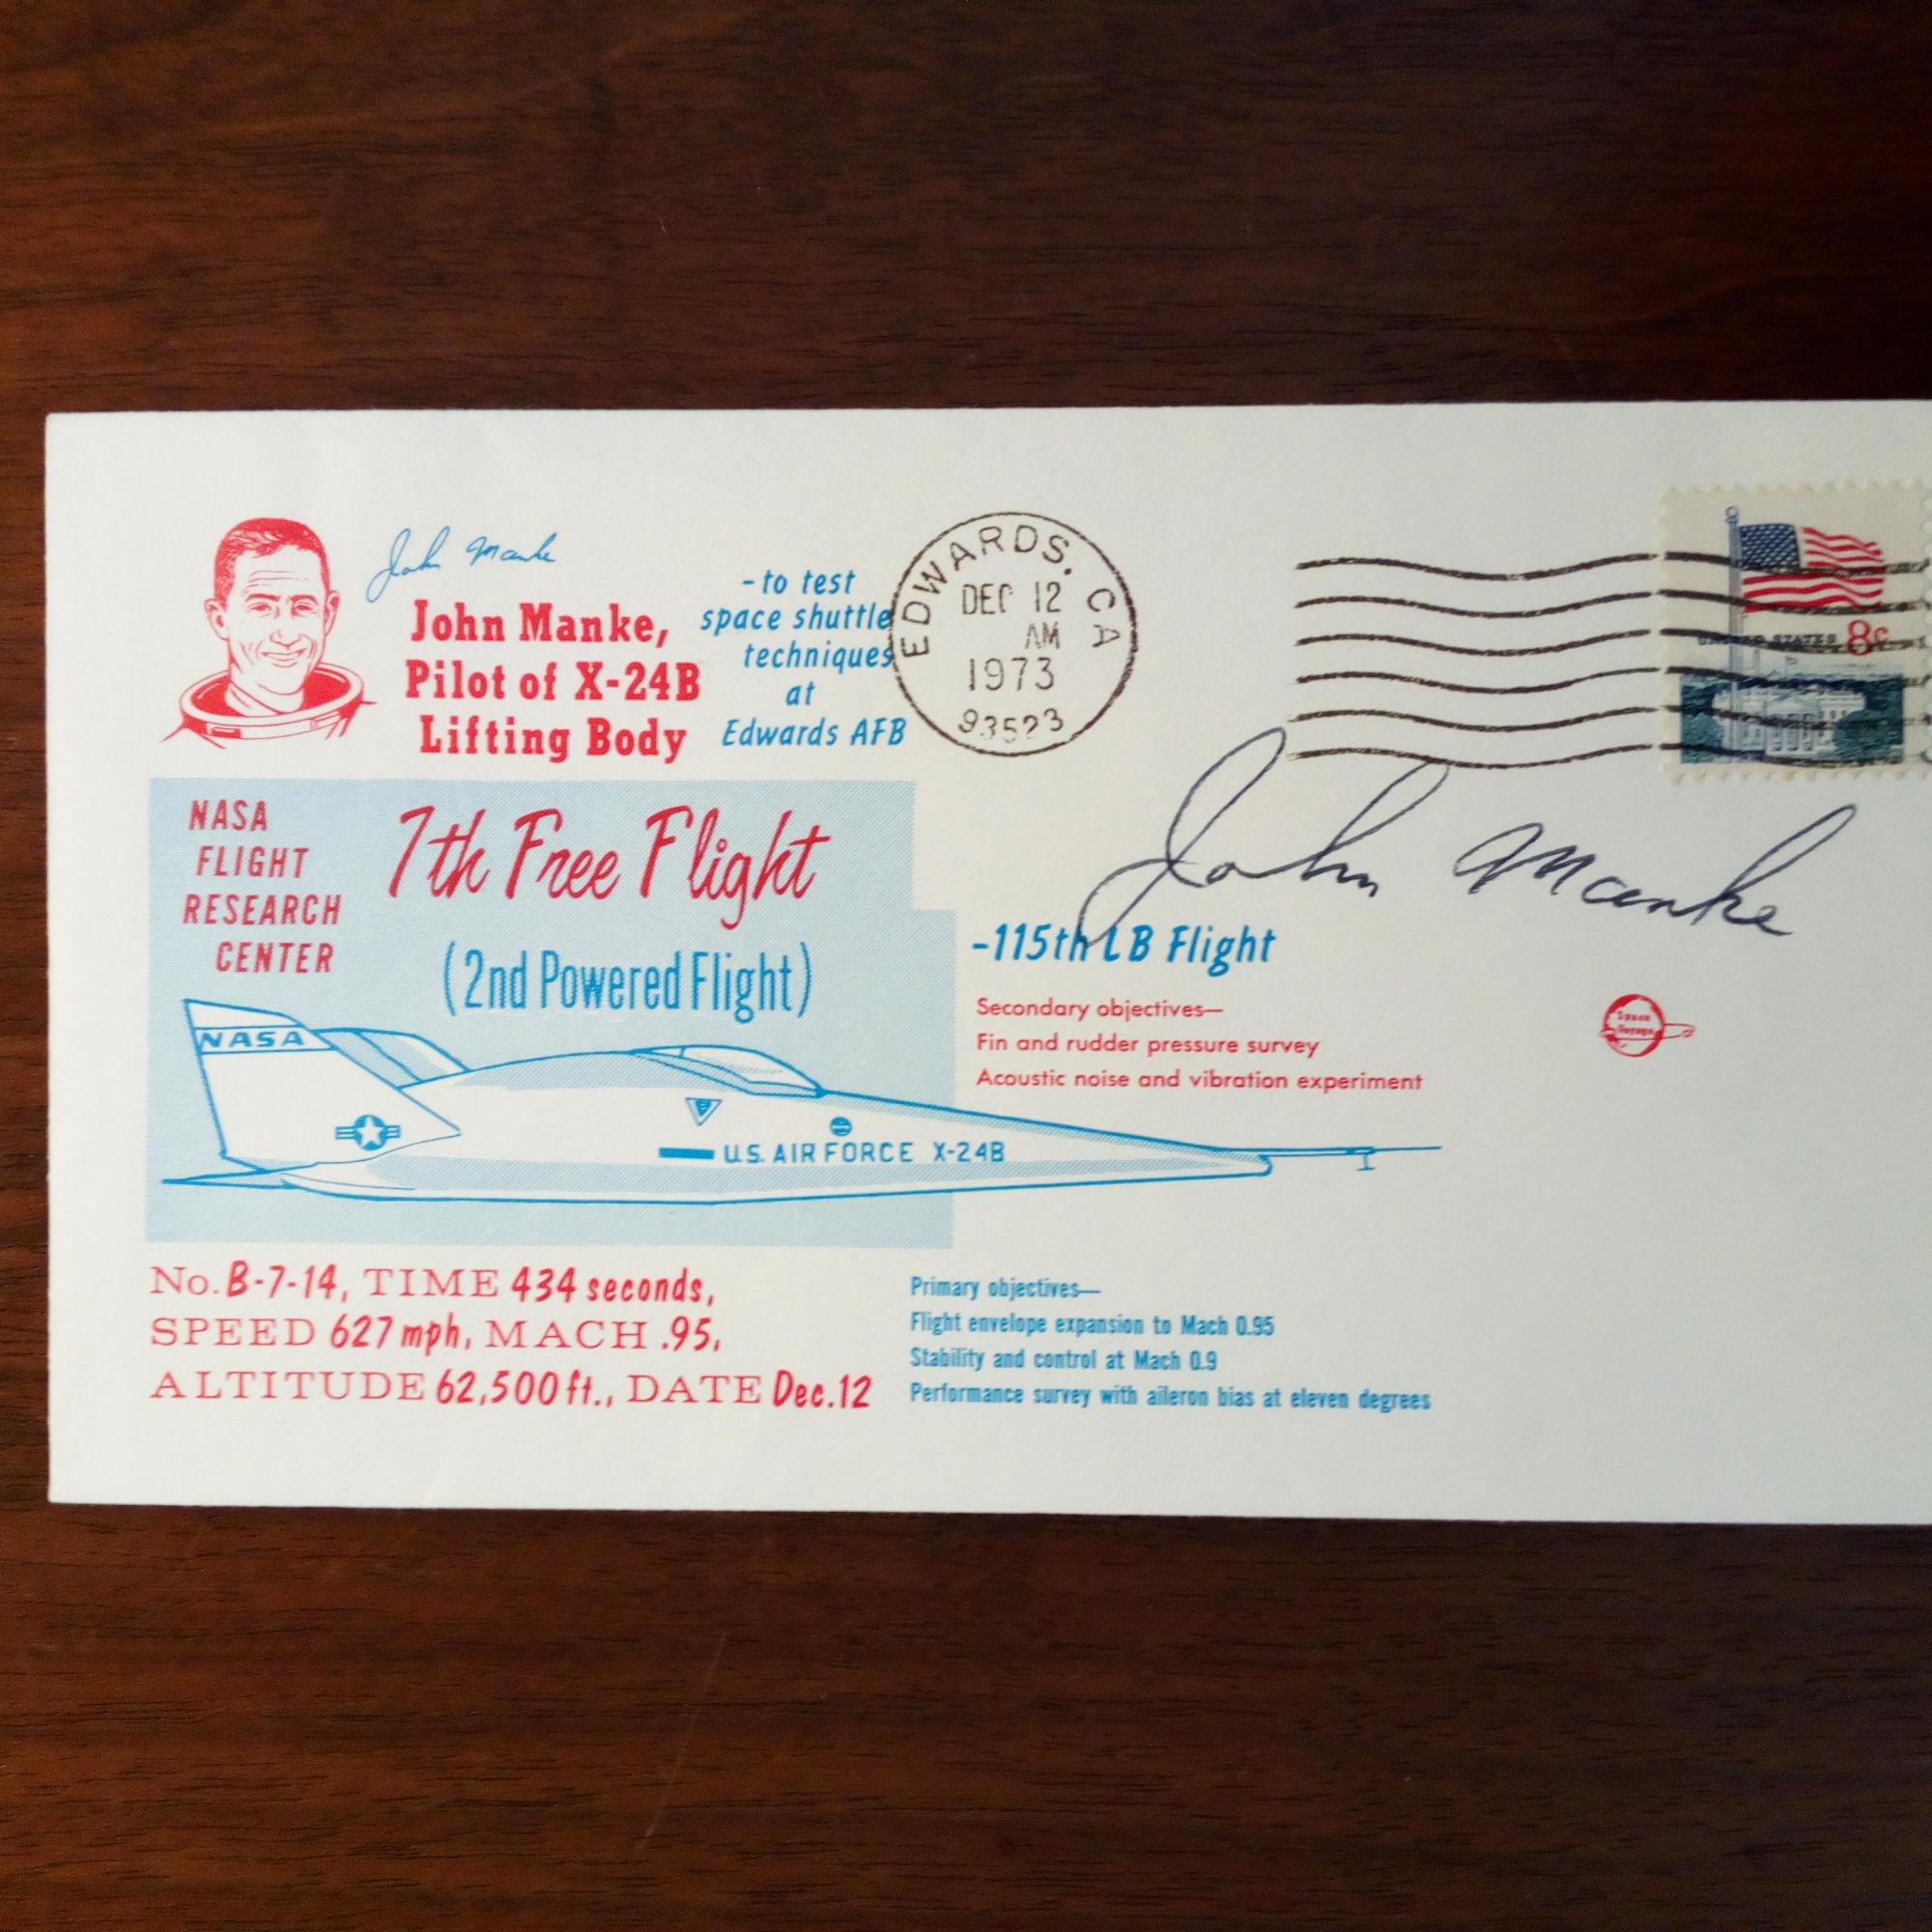 John Manke
John Manke,
Pilot of X-24B
Lifting Body
- to test
space shuttle
techniques
at
Edwards AFB
EDWARDS. CA
DEC 12
AM
1973
93523
UNITED STATES 8c
NASA
FLIGHT
RESEARCH
CENTER
7th Free Flight
(2nd Powered Flight)
John Manke
-115th LB Flight
Secondary objectives—
Fin and rudder pressure survey
Acoustic noise and vibration experiment
Space
Voyage
NASA
U.S. AIR FORCE X-24B
No. B-7-14, TIME 434 seconds,
SPEED 627 mph, MACH .95,
ALTITUDE 62,500 ft., DATE Dec.12
Primary objectives—
Flight envelope expansion to Mach 0.95
Stability and control at Mach 0.9
Performance survey with aileron bias at eleven degrees